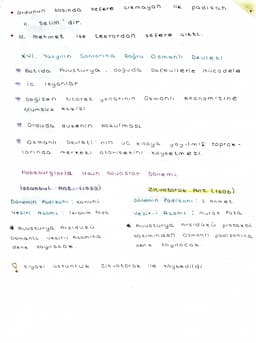 • Ordunun başında sefere çıkmayan ilk padişah
II. Selim'dir.
• III. Mehmet ise tekrardan sefere çıktı.
XVI. Yüzyılın Sonlarına Doğru Osmanlı Devleti
Batıda Avusturya, doğuda Safevilerle mücadele
İç isyanlar
Değişen ticaret yollarının Osmanlı ekonomisine
olumsuz etkisi
Orduda düzenin bozulması
Osmanlı Devleti'nin üç kıtaya yayılmış toprak-
larında merkezi otoritesini kaybetmesi.
Habsburglarla Uzun Savaşlar Dönemi
İstanbul Ant. (1533)
Dönemin Padişahı: Kanuni
Vezir-i Azamı: İbrahim Paşa
Avusturya Arşidükü
Osmanlı veziri azamına
denk sayılacak.
Zitvatorok Ant. (1606)
Dönemin Padişahı: I. Ahmet
Vezir-i Azamı: Murat Paşa
Avusturya Arşidükü protokol
bakımından Osmanlı padişahına
denk sayılacak.
Siyasi üstünlük Zitvatorok ile kaybedildi.